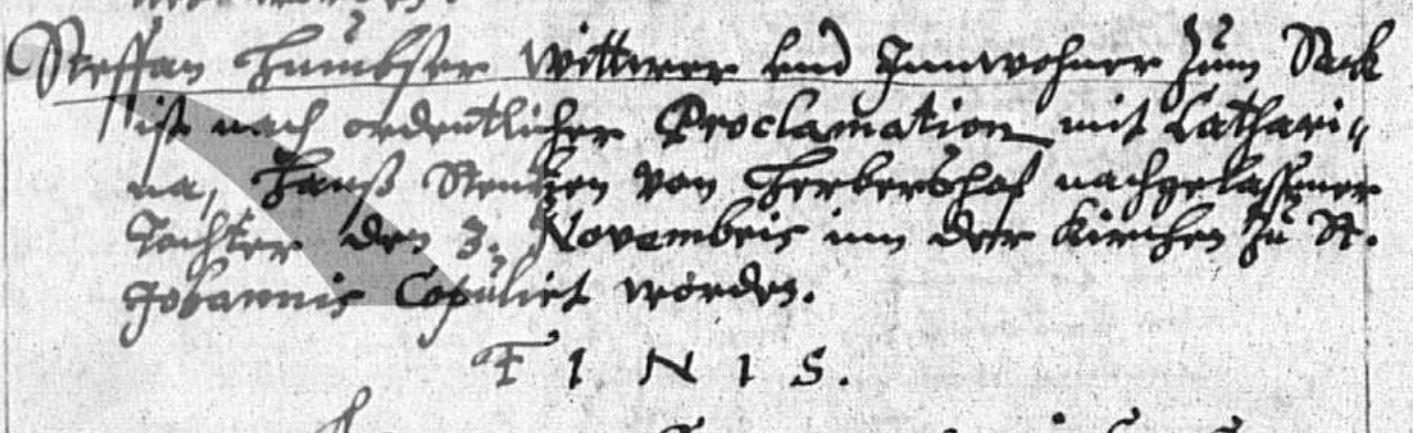 Steffan Hümbser Wittwer vnd Innwohner zum Steck
ist nach ordentlicher Proclamation mit Cathari-
na, Hanß von Herbertshof nachgelaßener
Tochter den 3. Novembris inn der Kirchen zu St.
Johannis Copulirt worden.
FINIS.